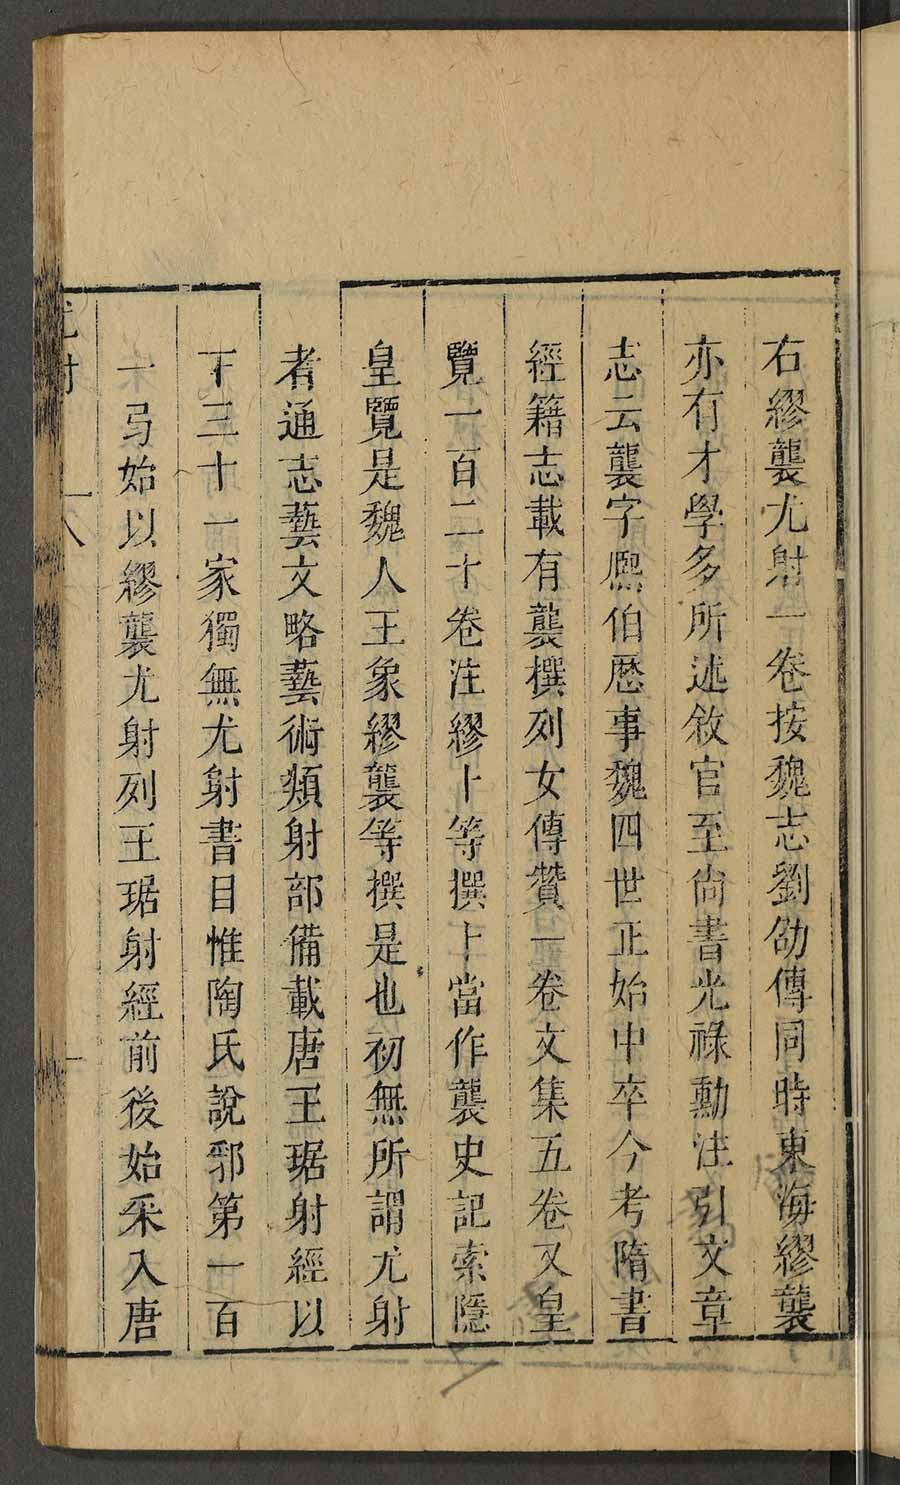 右繆襲尤射一卷按魏志劉劭傳同時東海繆襲
亦有才學多所述敘官至尙書光祿勳注引文章
志云襲字熈伯歷事魏四世正始中卒今考隋書
經籍志載有襲撰列女傳贊一卷文集五卷又皇
覽一百二十卷注繆卜等撰卜當作襲史記索隱
皇覽是魏人王象繆襲等撰是也初無所謂尤射
者通志藝文略藝術類射部備載唐王琚射經以
下三十一家獨無尤射書目惟陶氏說郛第一百
一弓始以繆襲尤射列王琚射經前後始采入唐
尤射 八